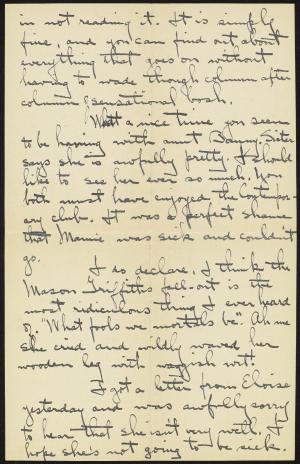 in not reading it. It is simply
fine, and you can find out about
everything that goes on without
having to wade though column after
column of sensational bosh.
What a nice time you seem
to be having with aunt Sister
says she is awfully pretty. I should
like to see her ever so much. You
both must have enjoyed the Contempor-
ary club. It was a perfect shame
that Mamie was sick and couldn't
go.
I do declare, I think the
Mason Griffiths fall-out is the
most ridiculous thing I ever heard
of. "What fools we mortals be". Ah me
she cried and wildly waved her
wooden leg with waggish wit.
I got a letter from Eloise
yesterday and was awfully sorry
to hear that she isn't very well. I
hope she's not going to be sick.